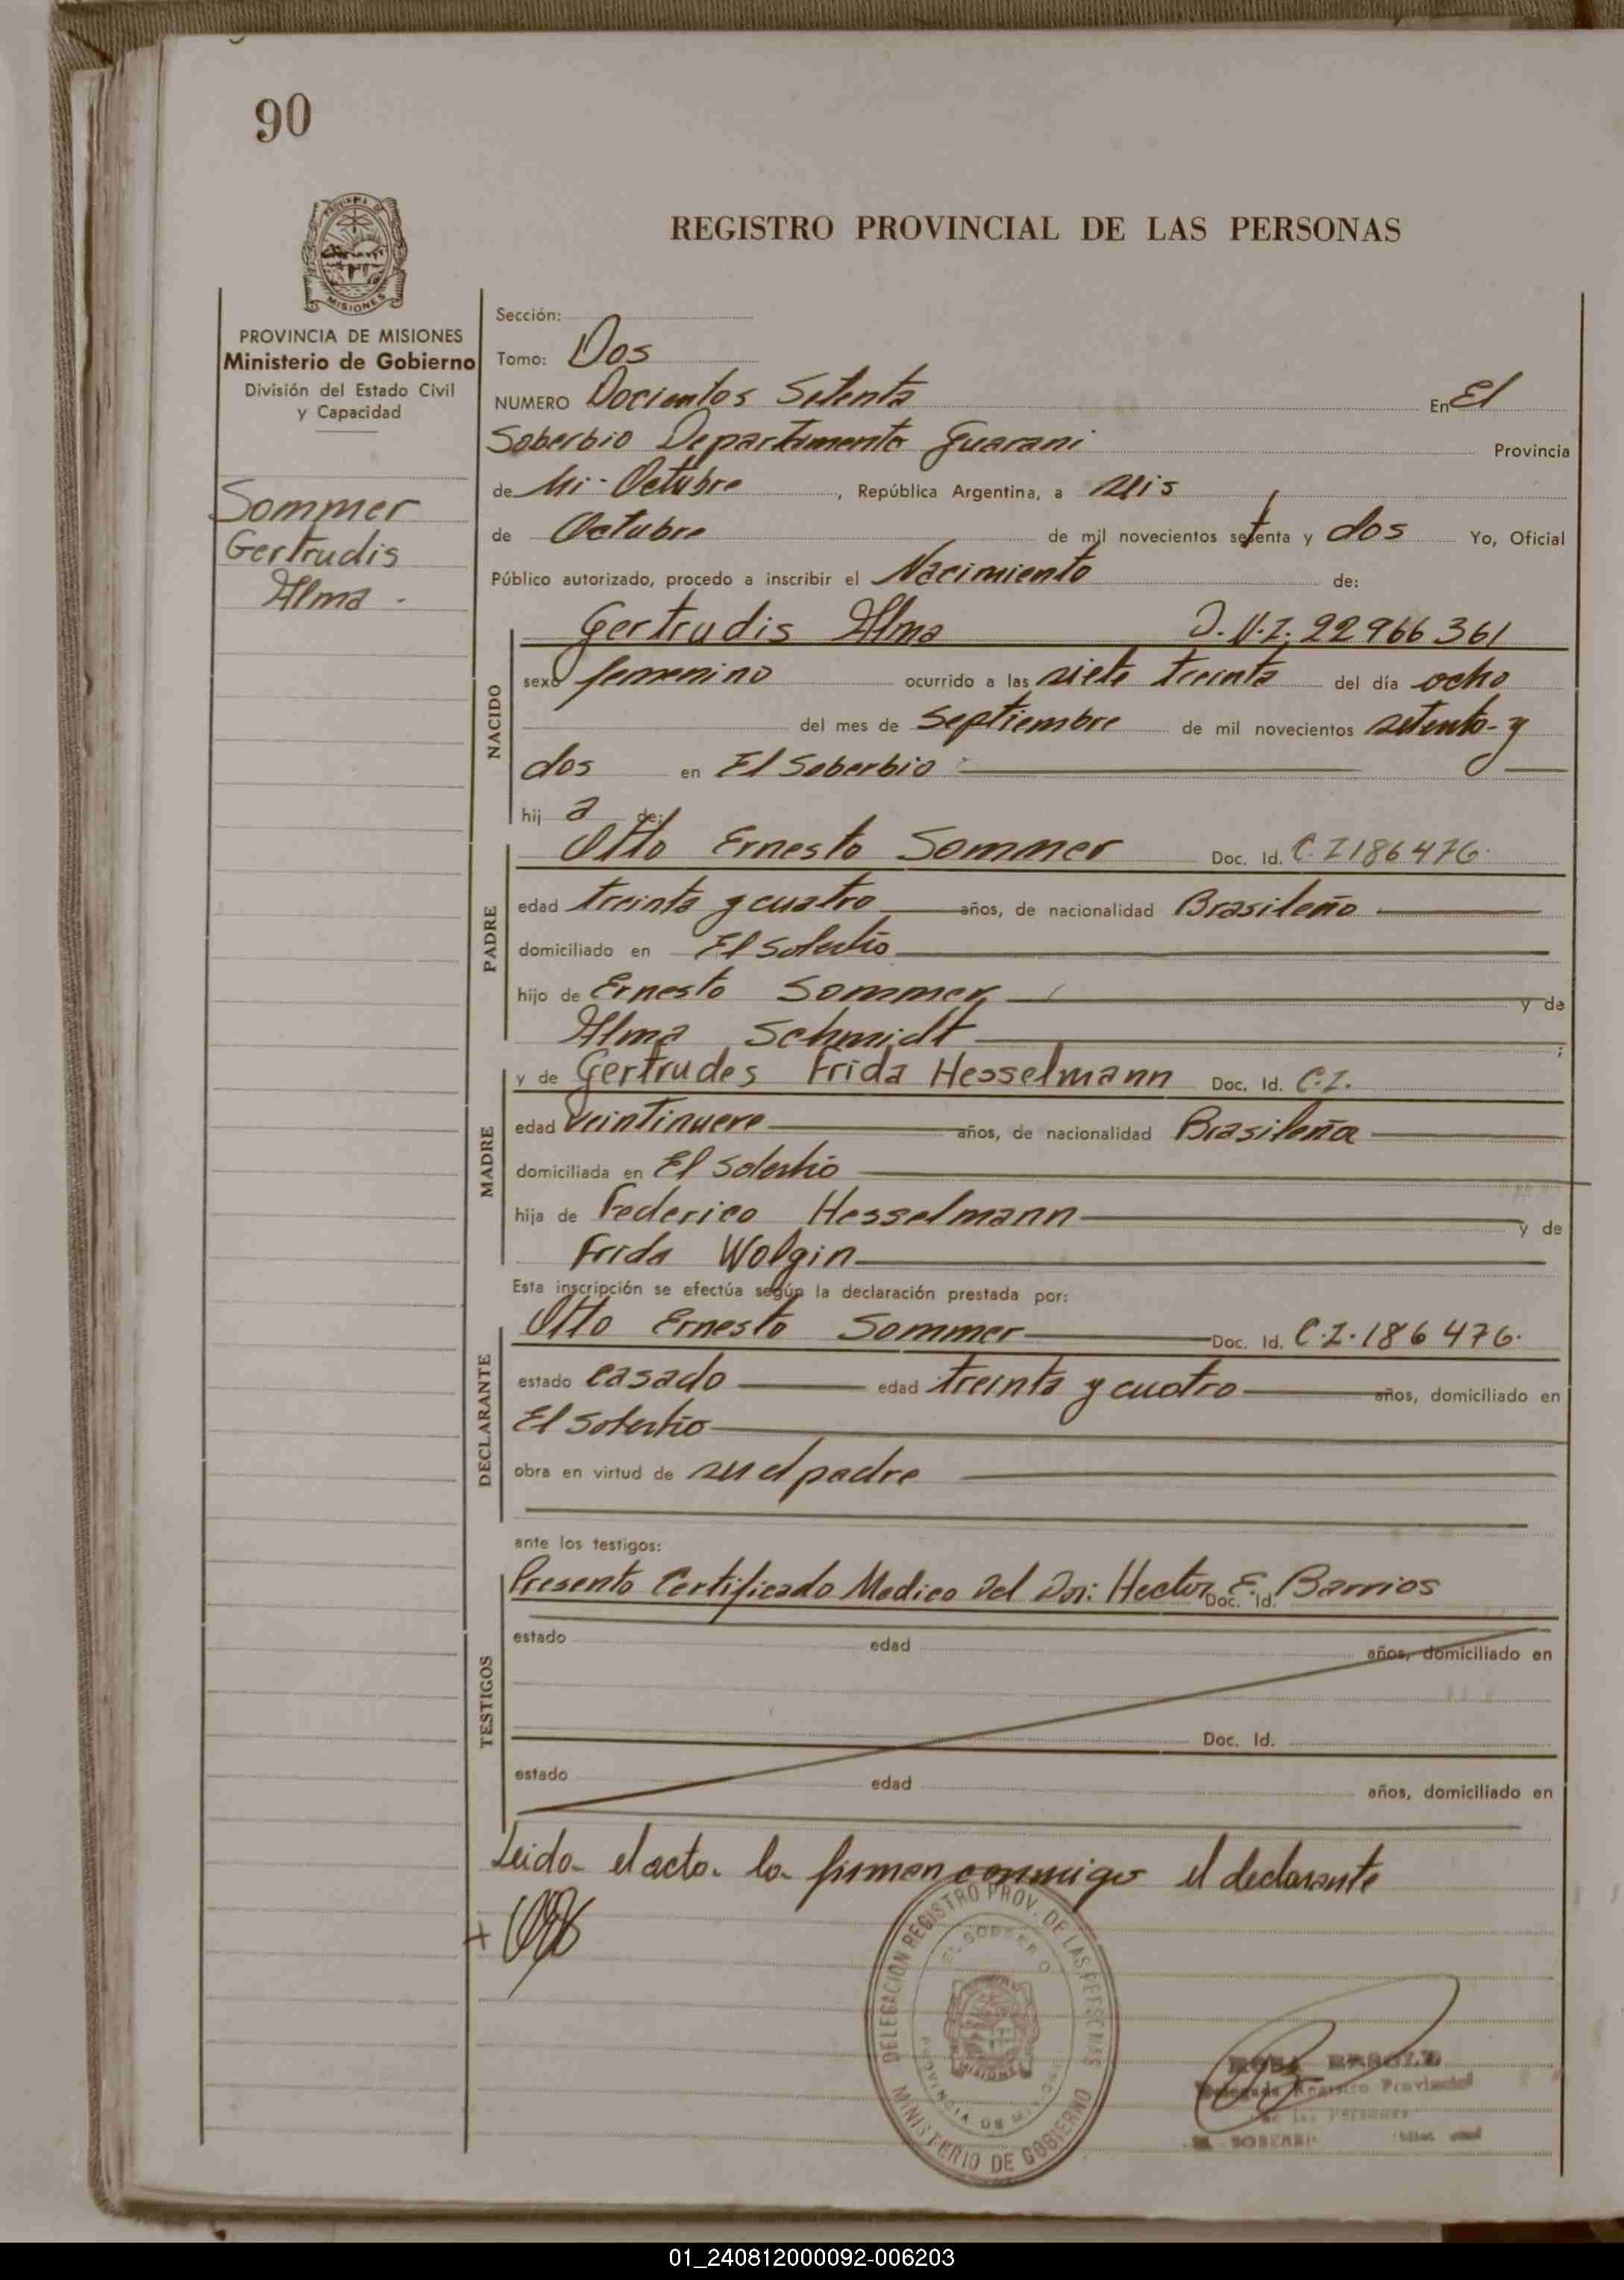 90
PROVINCIA DE MISIONES
Ministerio de Gobierno
División del Estado Civil
y Capacidad
Sommer
Gertrudis
Alma -
REGISTRO PROVINCIAL DE LAS PERSONAS
Sección:
Tomo: Dos
NUMERO Docientos Setenta En El
Soberbio Departamento Guarani Provincia
de Mi-Octubre, República Argentina, a seis
de Octubre de mil novecientos setenta y dos Yo, Oficial
Público autorizado, procedo a inscribir el Nacimiento de:
NACIDO
Gertrudis Alma D.N.I. 22966361
sexo femenino ocurrido a las siete treinta del día ocho
del mes de Septiembre de mil novecientos setenta y
dos en El Soberbio
hij a de:
PADRE
Otto Ernesto Sommer Doc. Id. C.I 186476.
edad treinta y cuatro años, de nacionalidad Brasileño
domiciliado en El Soberbio
hijo de Ernesto Sommer y de
Alma Schmidt ;
MADRE
y de Gertrudes Frida Hesselmann Doc. Id. C.I.
edad veintinueve años, de nacionalidad Brasileña
domiciliada en El Soberbio
hija de Federico Hesselmann y de
Frida Wolgin
Esta inscripción se efectúa según la declaración prestada por:
DECLARANTE
Otto Ernesto Sommer Doc. Id. C.I. 186476.
estado casado edad treinta y cuatro años, domiciliado en
El Soberbio
obra en virtud de su el padre
ante los testigos:
TESTIGOS
Presento Certificado Medico Del Dr: Hector E. Barrios Doc. Id.
estado edad años, domiciliado en
Doc. Id.
estado edad años, domiciliado en
Leida el acta la firman conmigo el declarante
DELEGACION REGISTRO PROV. DE LAS PERSONAS
EL SOBERBIO
MISIONES
PROVINCIA DE MISIONES
MINISTERIO DE GOBIERNO
Delegada Registro Provincial
de las Personas
EL SOBERBIO
01_240812000092-006203